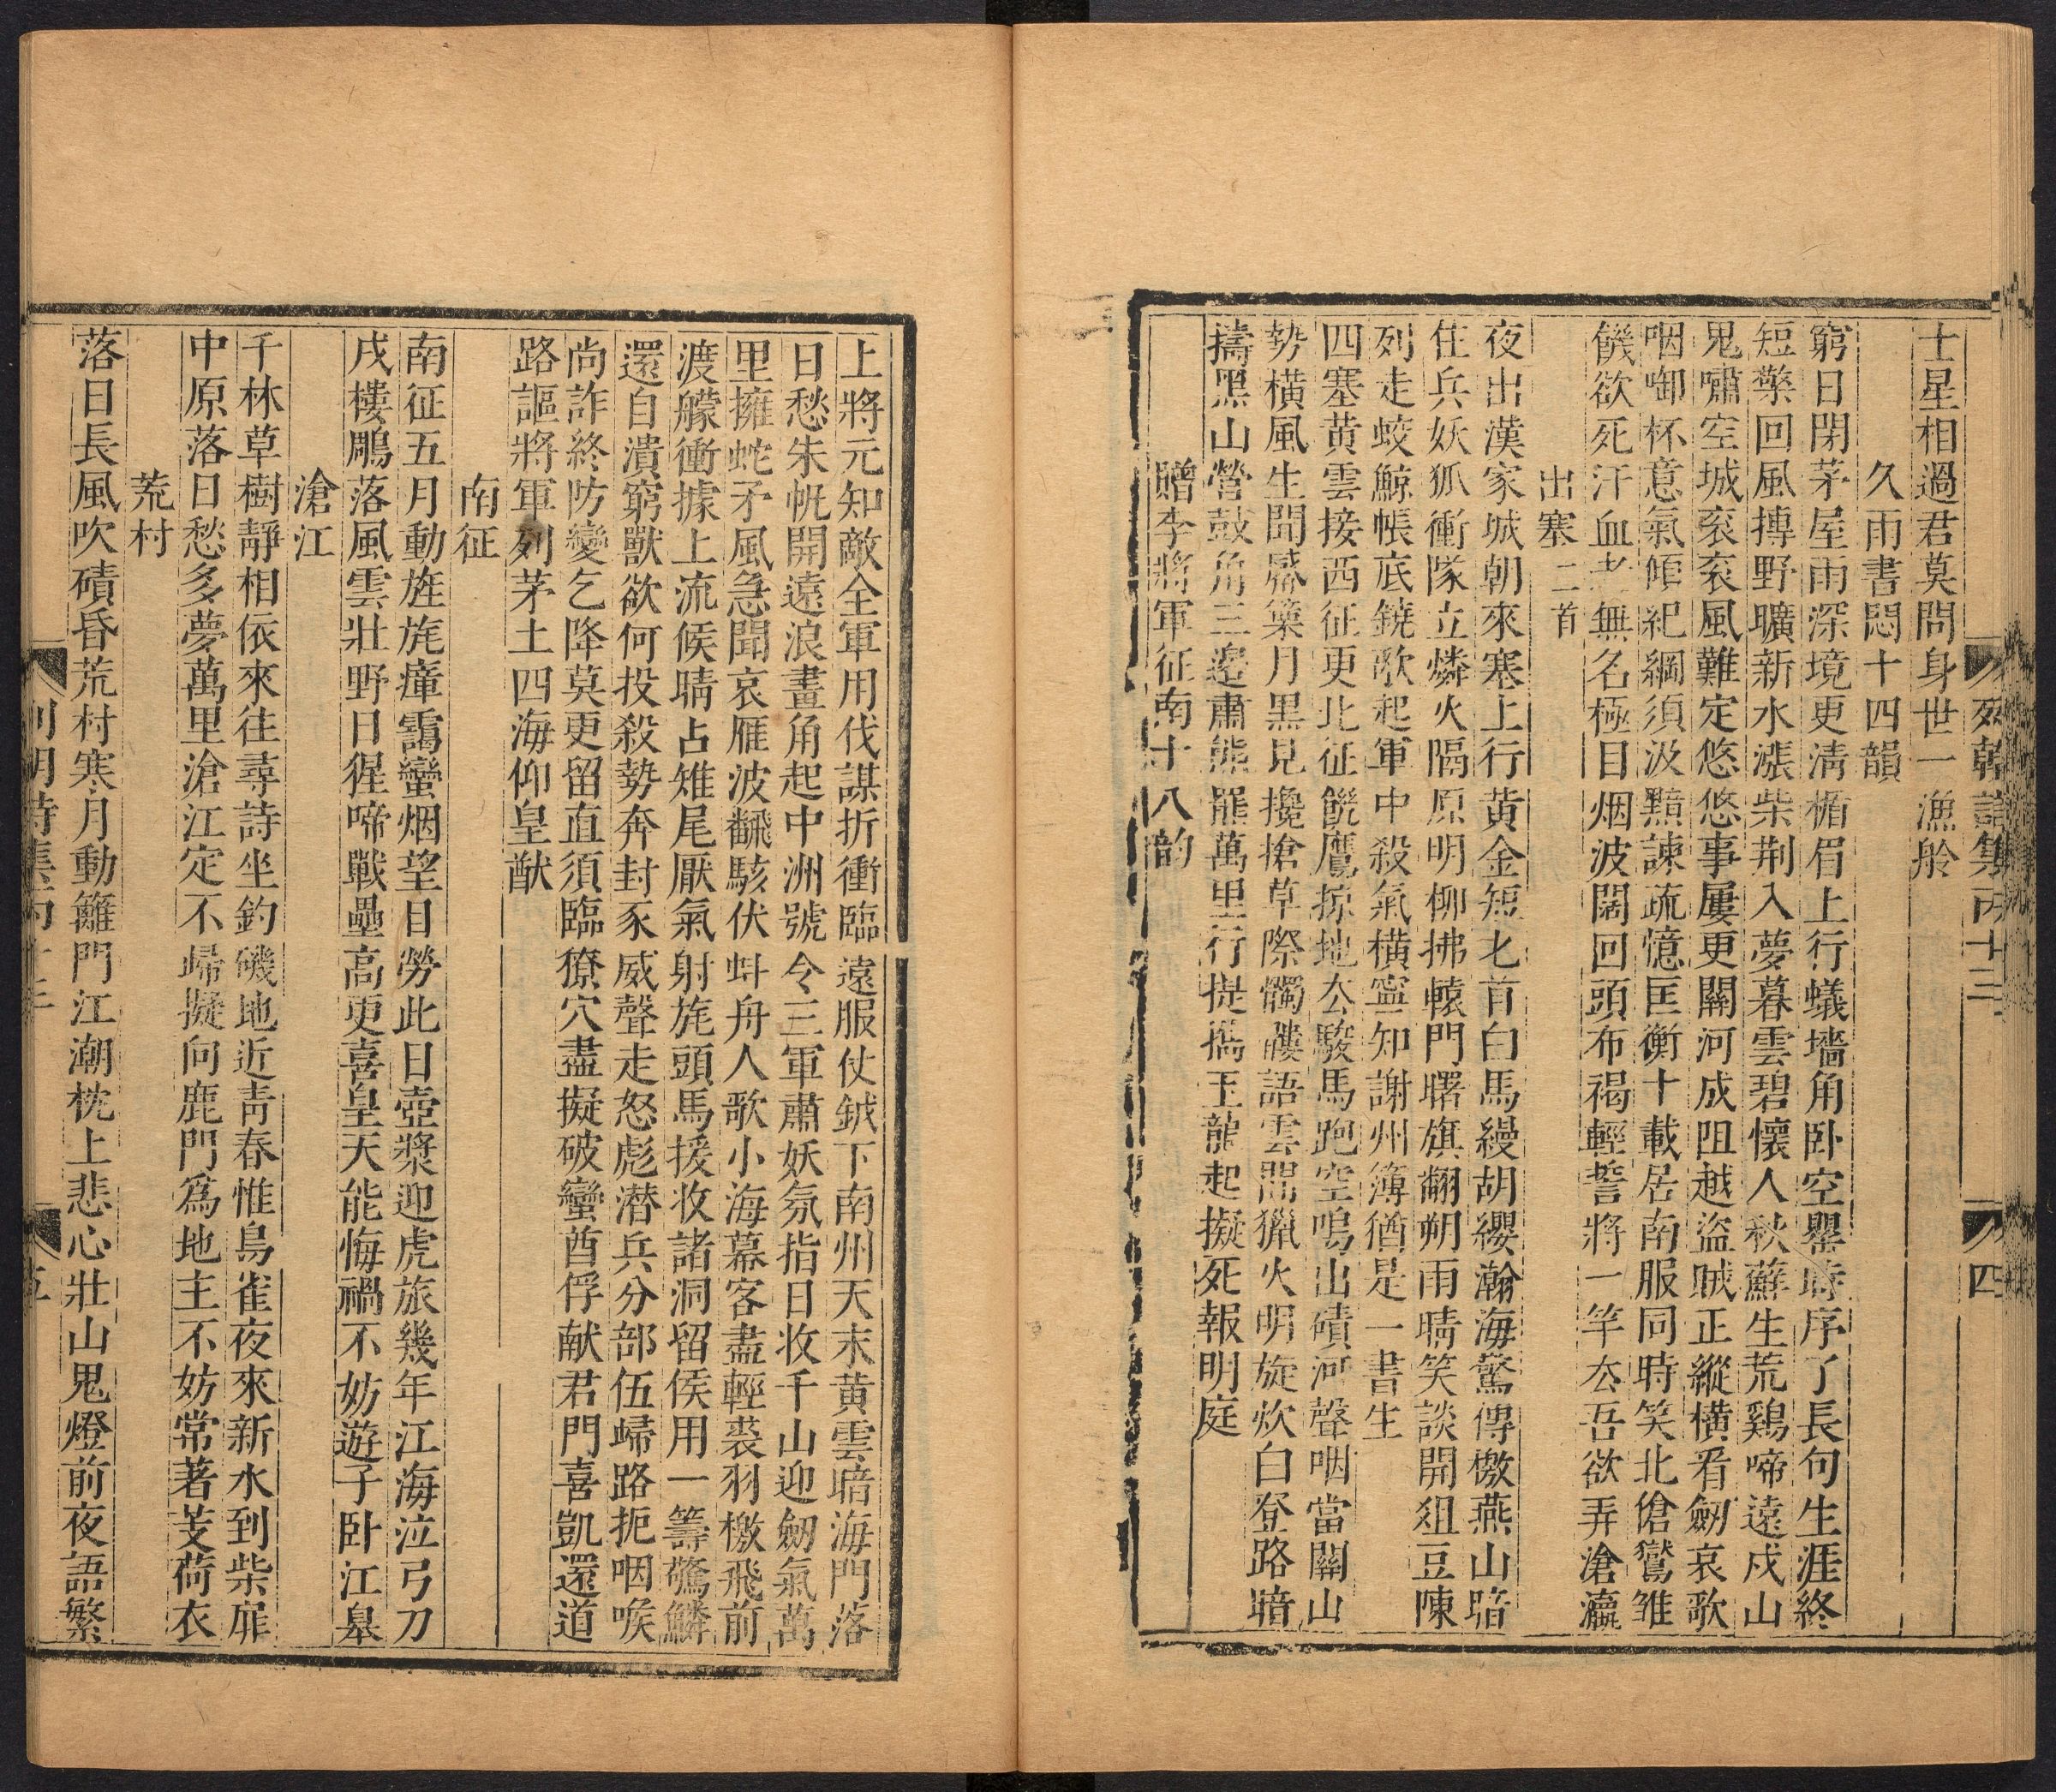 士星相過君莫問身世一漁舲
久雨書悶十四韻
窮日閉茅屋雨深境更淸楯眉上行蟻墻角卧空罌時序了長句生涯終
短檠回風搏野曠新水漲柴荆入夢暮雲碧懷人秋蘇生荒鷄啼遠戍山
鬼嘯空城衮衮風難定悠悠事屢更關河成阻越盜賊正縱橫看劒哀歌
咽啣杯意氣傾紀綱須汲黯諫疏憶匡衡十載居南服同時笑北傖鸑雏
饑欲死汗血老無名極目烟波闊回頭布褐輕誓將一竿厺吾欲弄滄瀛
出塞二首
夜出漢家城朝來塞上行黄金短匕首白馬縵胡纓瀚海驚傳檄燕山暗
住兵妖狐衝隊立燐火隔原明柳拂轅門曙旗翻朔雨晴笑談開俎豆陳
列走蛟鯨帳底鐃歌起軍中殺氣橫寜知謝州薄猶是一書生
四塞黄雲接西征更北征饑鷹掠地厺駿馬跑空鳴出磧河聲咽當關山
勢橫風生聞觱篥月黒見攙搶草際髑髏語雲間獵火明旋炊白登路暗
擣黒山營鼓角三邉肅熊羆萬里行提携玉龍起擬死報明庭
贈李將軍征南十八韵
上將元知敵全軍用伐謀折衝臨遠服仗鉞下南州天末黄雲暗海門落
日愁朱帆開遠浪畫角起中洲號令三軍肅妖氛指日收千山迎劒氣萬
里擁蛇矛風急聞哀雁波飜駭伏虯舟人歌小海幕客盡輕裘羽檄飛前
渡艨衝據上流候晴占雉尾厭氣射旄頭馬援收諸洞留侯用一籌驚鱗
還自潰窮獸欲何投殺勢奔封豕威聲走怒彪潜兵分部伍歸路扼咽喉
尚詐終防變乞降莫更留直須臨獠穴盡擬破蠻酋俘献君門喜凱還道
路謳將軍列茅土四海仰皇猷
南征
南征五月動旌旄瘴靄蠻烟望目勞此日壺漿迎虎旅幾年江海泣弓刀
戌樓鵰落風雲壯野日猩啼戰壘高更喜皇天能悔禍不妨遊子卧江臯
滄江
千林草樹靜相依來往尋詩坐釣磯地近靑春惟鳥雀夜來新水到柴扉
中原落日愁多夢萬里滄江定不歸擬向鹿門爲地主不妨常著芰荷衣
荒村
落日長風吹磧昏荒村寒月動籬門江潮枕上悲心壯山鬼燈前夜語繁
列朝詩集丙十三
五
列朝詩集丙十三
四